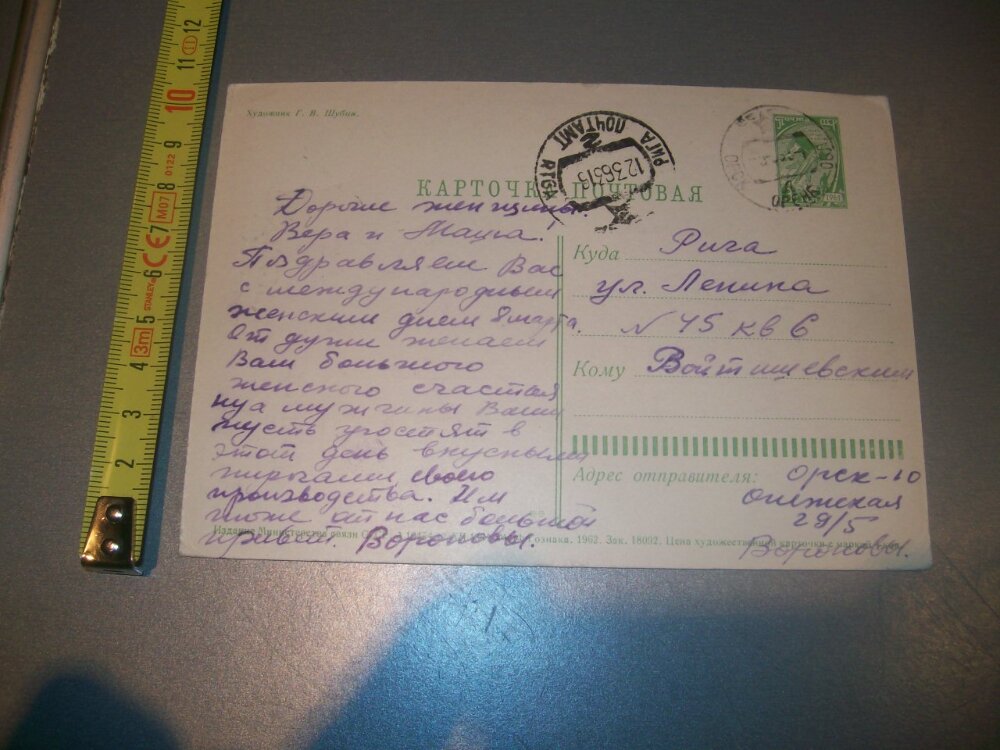 Художник Г. В. Шубин.
КАРТОЧКА ПОЧТОВАЯ
РИГА ПОЧТАМТ RIGA
1236315
ОРСК
Дорогие женщины
Вера и Маша!
Поздравляем Вас
с международным
женским днем 8 марта.
От души желаем
Вам большого
женского счастья
ну а мужчины Ваши
пусть угостят в
этот день вкусными
пирогами своего
производства. Им
тоже от нас большой
привет. Вороновы.
Куда Рига
ул. Ленина
N 45 кв 6
Кому Войтишевским
Адрес отправителя: Орск-10
Онежская
29/5
Вороновы.
Издание Министерства связи ознака. 1962. Зак. 18092. Цена художественной карточки с маркой
12
11
10
9
8
7
6
5
4
3
2
3m
CE
M07
0122
STANLEY